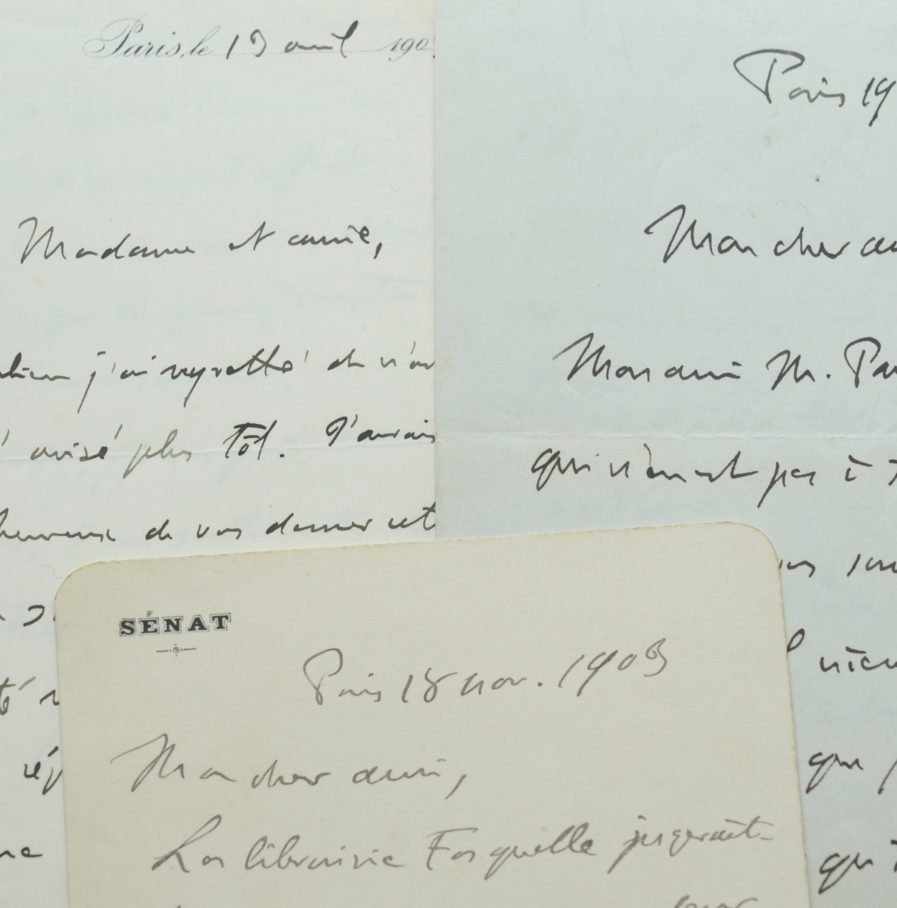 Paris, le 13 avril 190
Madame et amie,
j'ai regretté de n'av
avisé plus tôt. J'aurais
heureux de vous donner cet
Paris 19
Mon cher am
Mon ami M. Pa
qui n'en est pas à
vien
que
qui
SÉNAT
Paris 18 nov. 1903
Mon cher ami,
La librairie Fasquelle jugerait-